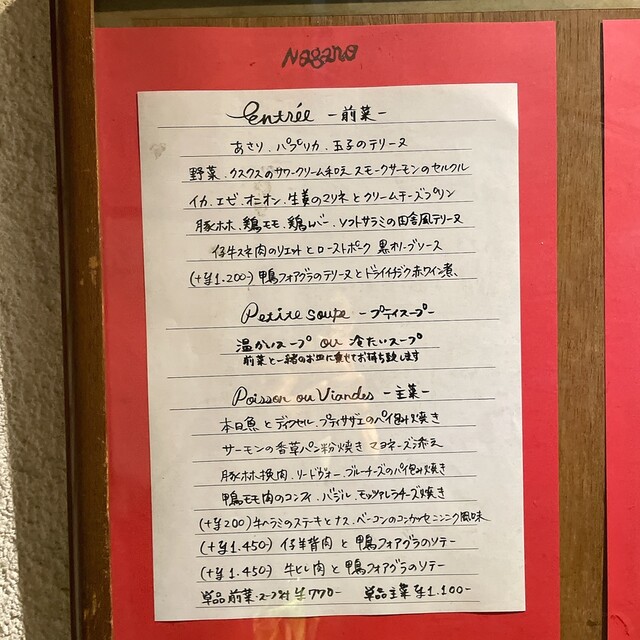 Nagano
Entrée -前菜-
あさり、パプリカ、玉子のテリーヌ
野菜、クスクスのサワークリーム和え スモークサーモンのセルクル
イカ、エビ、オニオン、生姜のマリネとクリームチーズプリン
豚ホホ、鶏モモ、鶏レバー、ソフトサラミの田舎風テリーヌ
仔牛スネ肉のリエットとローストポーク 黒オリーブソース
(+¥1.200-) 鴨フォアグラのテリーヌとドライイチジク赤ワイン煮、
Petite soupe -プティスープ-
温かいスープ ou 冷たいスープ
前菜と一緒のお皿に乗せてお持ち致します
Poisson ou Viandes -主菜-
本日魚とデュクセル、プティサザエのパイ包み焼き
サーモンの香草パン粉焼き マヨネーズ添え
豚ホホ挽肉、リードヴォー、ブルーチーズのパイ包み焼き
鴨モモ肉のコンフィ、バジル、モッツァレラチーズ焼き
(+¥200) 牛ハラミのステーキとナス、ベーコンのコンカッセ ニンニク風味
(+¥1.450-) 仔羊背肉と鴨フォアグラのソテー
(+¥1.450-) 牛ヒレ肉と鴨フォアグラのソテー
単品前菜・スープ付 ¥770- 単品主菜 ¥1.100-